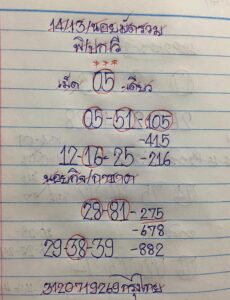 14/13/นอยมัดรวม
พิปกวี
***
เม็ด 05 -เดียว
05-51-105
-415
12-16-25-216
นอยกิจ/กาชาด
28-81-275
-678
29-38-39-882
3120719269 กรุงไทย